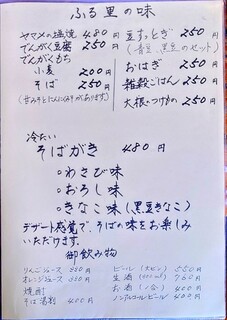 ふる里の味
ヤマメの塩焼 480円
でんがく豆腐 250円
でんがくもち
小麦 200円
そば 250円
(甘みそとにんにくみそがあります)
豆すっとぎ 250
(青豆、黒豆のセット)
おはぎ 250
雑穀ごはん 250
大根のつけもの 250
冷たい
そばがき 480円
・わさび味
・おろし味
・きなこ味(黒豆きなこ)
デザート感覚で、そばの味をお楽しみ
いただけます。
御飲み物
りんごジュース 350円
オレンジジュース 350円
焼酎
そば湯割 400円
ビール(大ビン) 550円
生酒 760円
お酒(1合) 400円
ノンアルコールビール 400円